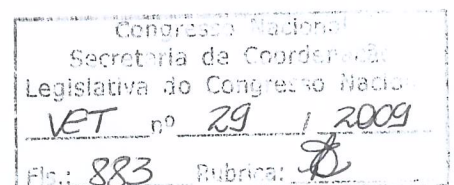 Congresso Nacional
Secretaria de Coordenação
Legislativa do Congresso Nacional
VET nº 29 / 2009
Fls.: 883 Rubrica: